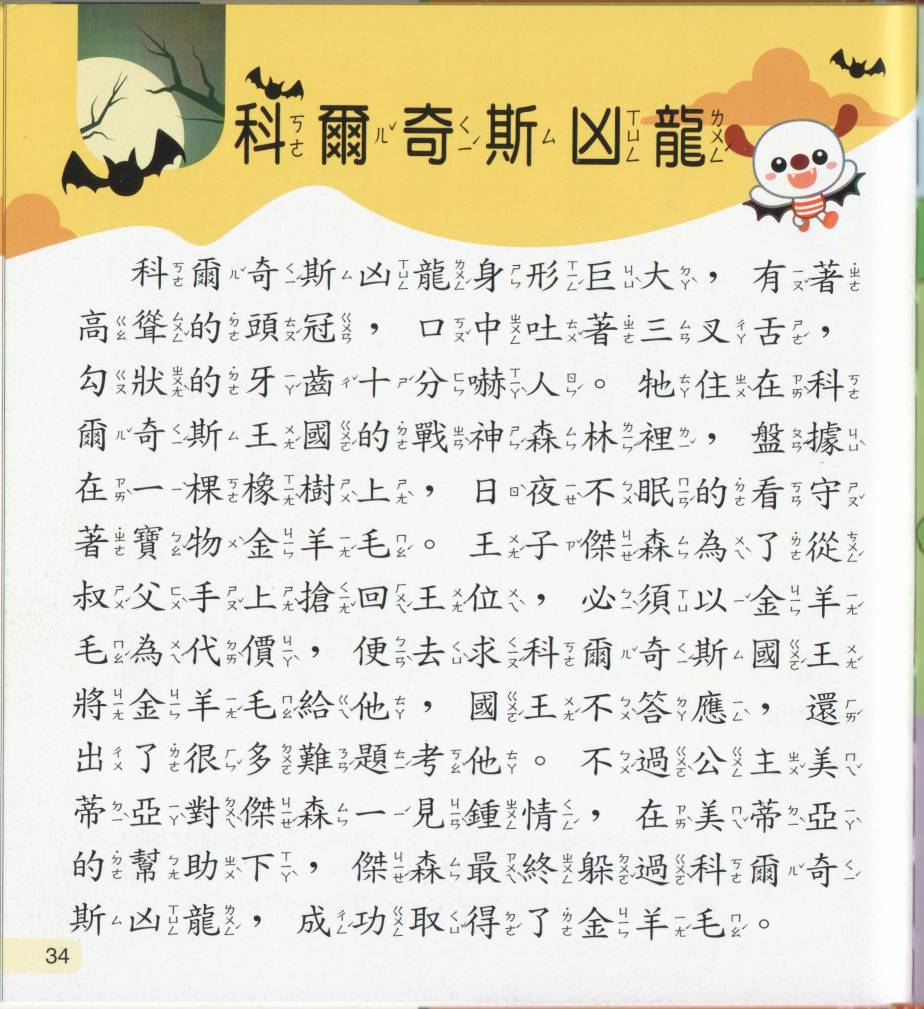 科爾奇斯凶龍
科爾奇斯凶龍身形巨大，有著
高聳的頭冠，口中吐著三叉舌，
勾狀的牙齒十分嚇人。牠住在科
爾奇斯王國的戰神森林裡，盤據
在一棵橡樹上，日夜不眠的看守
著寶物金羊毛。王子傑森為了從
叔父手上搶回王位，必須以金羊
毛為代價，便去求科爾奇斯國王
將金羊毛給他，國王不答應，還
出了很多難題考他。不過公主美
蒂亞對傑森一見鍾情，在美蒂亞
的幫助下，傑森最終躲過科爾奇
斯凶龍，成功取得了金羊毛。
34